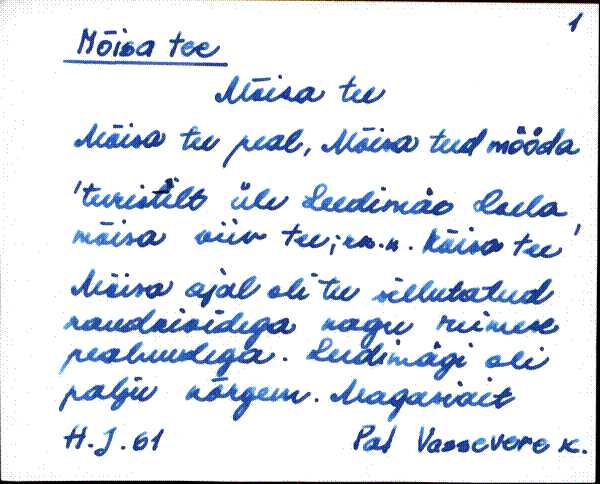 1
Mõisa tee
Mõisa tee
Mõisa tee peal, Mõisa teed mööda
'turistilt üle Leedimäo Loela
mõisa viiv tee; rw.n. Mõisa tee'
Mõisa ajal oli tee sillutatud
raudkividega nagu inimese
pealuudega. Leedimägi oli
palju kõrgem. Magasiait
H.J.61 Pal Vassevere k.